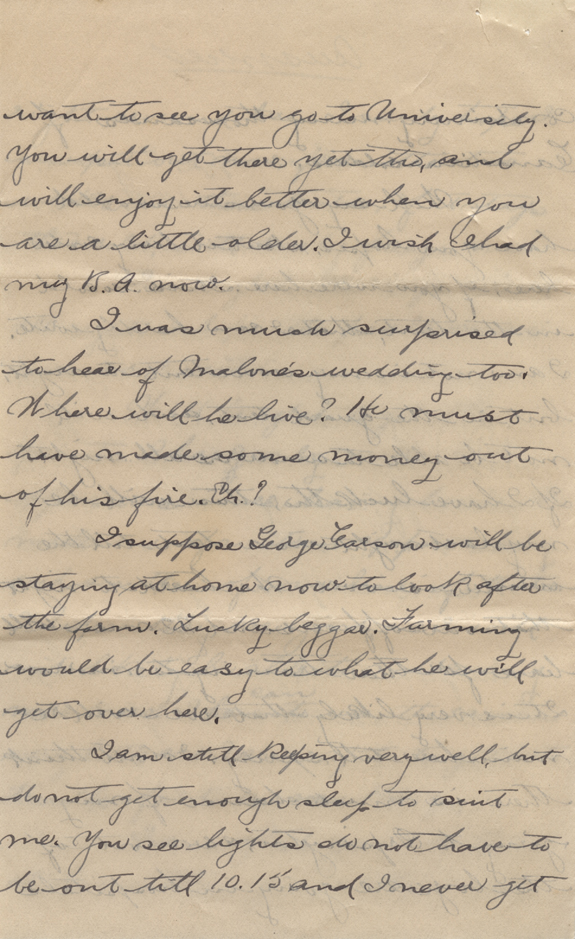 want to see you go to University.
You will get there yet tho, and
will enjoy it better when you
are a little older. I wish I had
my B.A. now.
I was much surprised
to hear of Malone's wedding too.
Where will he live? He must
have made some money out
of his fire. Eh?
I suppose George Carson will be
staying at home now to look after
the farm. Lucky beggar. Farming
would be easy to what he will
get over here.
I am still keeping very well, but
do not get enough sleep to suit
me. You see lights do not have to
be out till 10.15 and I never get